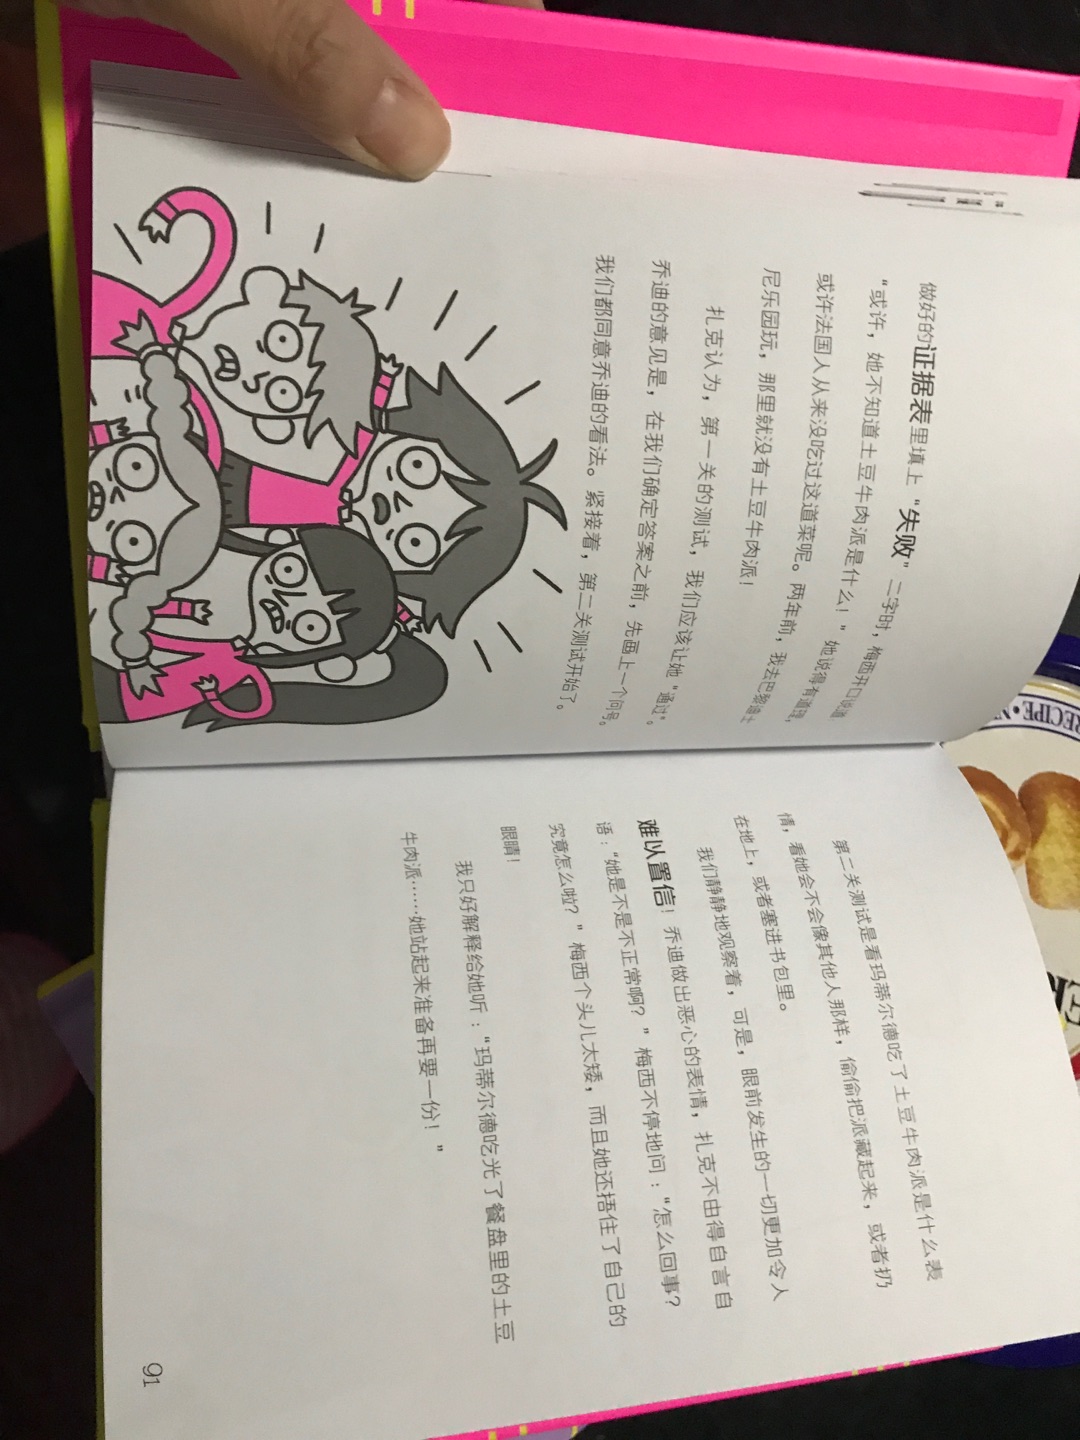 做好的证据表里填上“失败”二字时，梅西开口说道：
“或许，她不知道土豆牛肉派是什么！”她说得有道理，
或许法国人从来没吃过这道菜呢。两年前，我去巴黎迪士
尼乐园玩，那里就没有土豆牛肉派！
扎克认为，第一关的测试，我们应该让她“通过”。
乔迪的意见是，在我们确定答案之前，先画上一个问号。
我们都同意乔迪的看法。紧接着，第二关测试开始了。
第二关测试是看玛蒂尔德吃了土豆牛肉派是什么表
情，看她会不会像其他人那样，偷偷把派藏起来，或者扔
在地上，或者塞进书包里。
我们静静地观察着，可是，眼前发生的一切更加令人
难以置信！乔迪做出恶心的表情，扎克不由得自言自
语：“她是不是不正常啊？”梅西不停地问：“怎么回事？
究竟怎么啦？”梅西个头儿太矮，而且她还捂住了自己的
眼睛！
我只好解释给她听：“玛蒂尔德吃光了餐盘里的土豆
牛肉派……她站起来准备再要一份！”
91
RECIPE • N